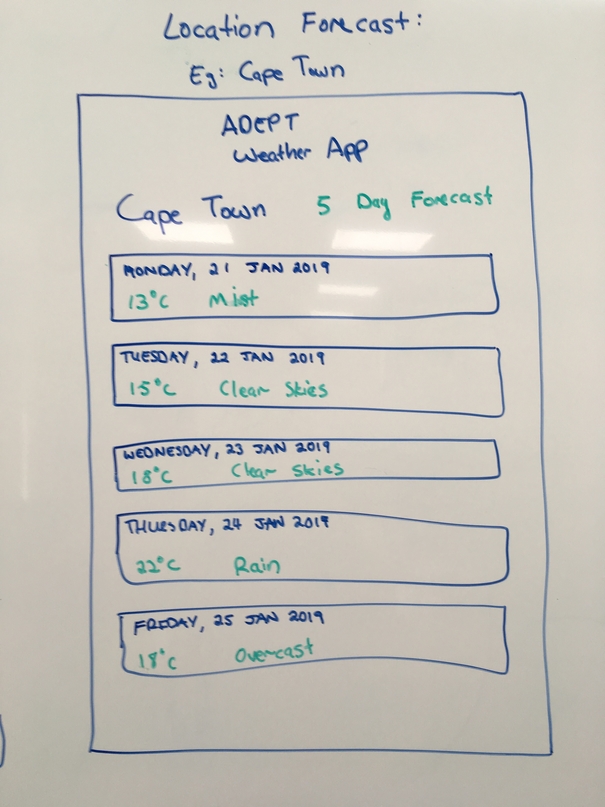 Location Forecast:
Eg: Cape Town
ADEPT
Weather App
Cape Town 5 Day Forecast
MONDAY, 21 JAN 2019
13°C Mist
TUESDAY, 22 JAN 2019
15°C Clear Skies
WEDNESDAY, 23 JAN 2019
18°C Clear Skies
THURSDAY, 24 JAN 2019
22°C Rain
FRIDAY, 25 JAN 2019
18°C Overcast